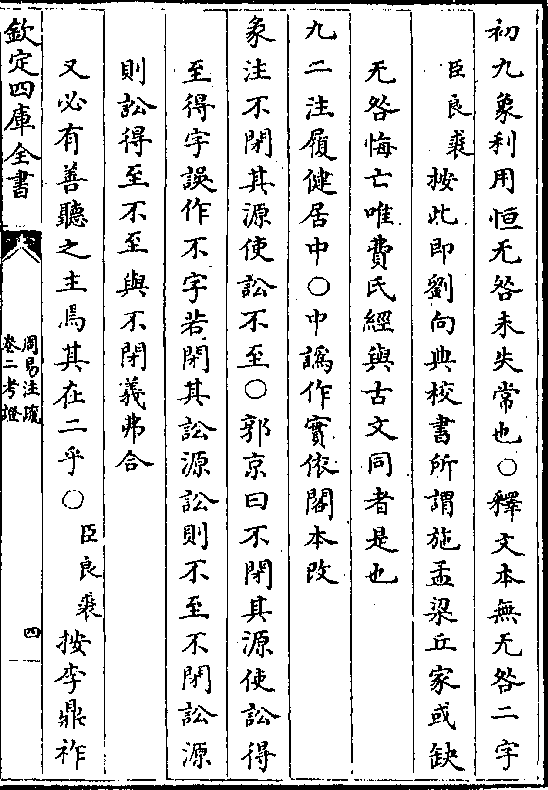 初九象利用恒无咎未失常也○釋文本無无咎二字
臣良裘按此即劉向典校書所謂施孟梁丘家或缺
无咎悔亡唯費氏經與古文同者是也
九二注履健居中○中譌作實依閣本改
彖注不閉其源使訟不至○郭京曰不閉其源使訟得
至得字誤作不字若閉其訟源訟則不至不閉訟源
則訟得至不至與不閉義弗合
又必有善聽之主焉其在二乎○臣良裘按李鼎祚
欽定四庫全書
周易注疏
卷二考證
四